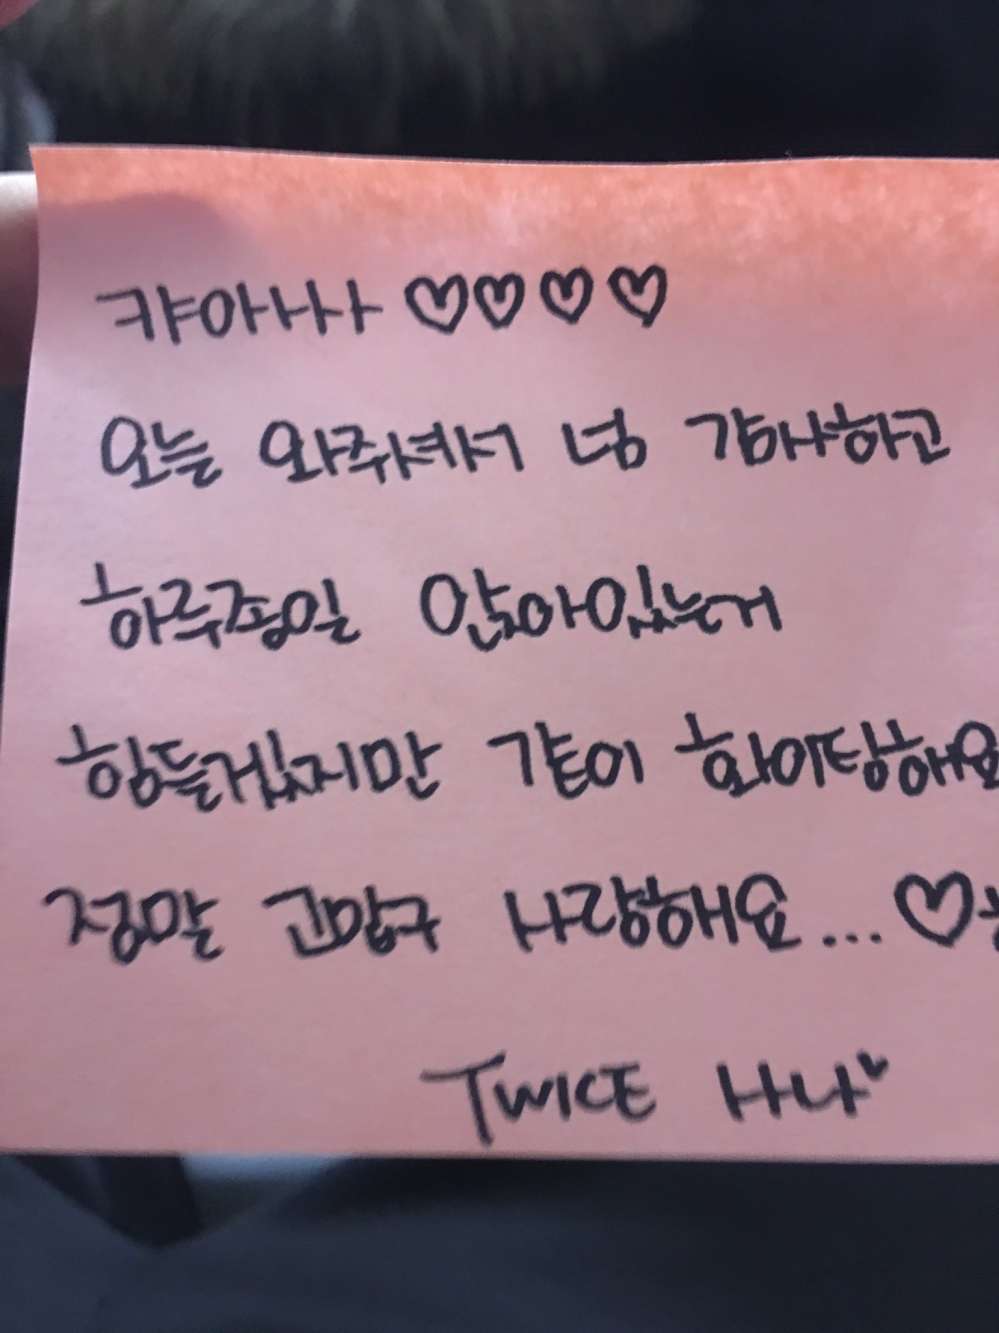 캬아ㅏㅏㅏ ♡♡♡♡
오늘 와주셔서 넘 감사하고
하루종일 앉아있는거
힘들겠지만 같이 화이팅해요
정말 고맙구 사랑해요...♡
TWICE 사나♥